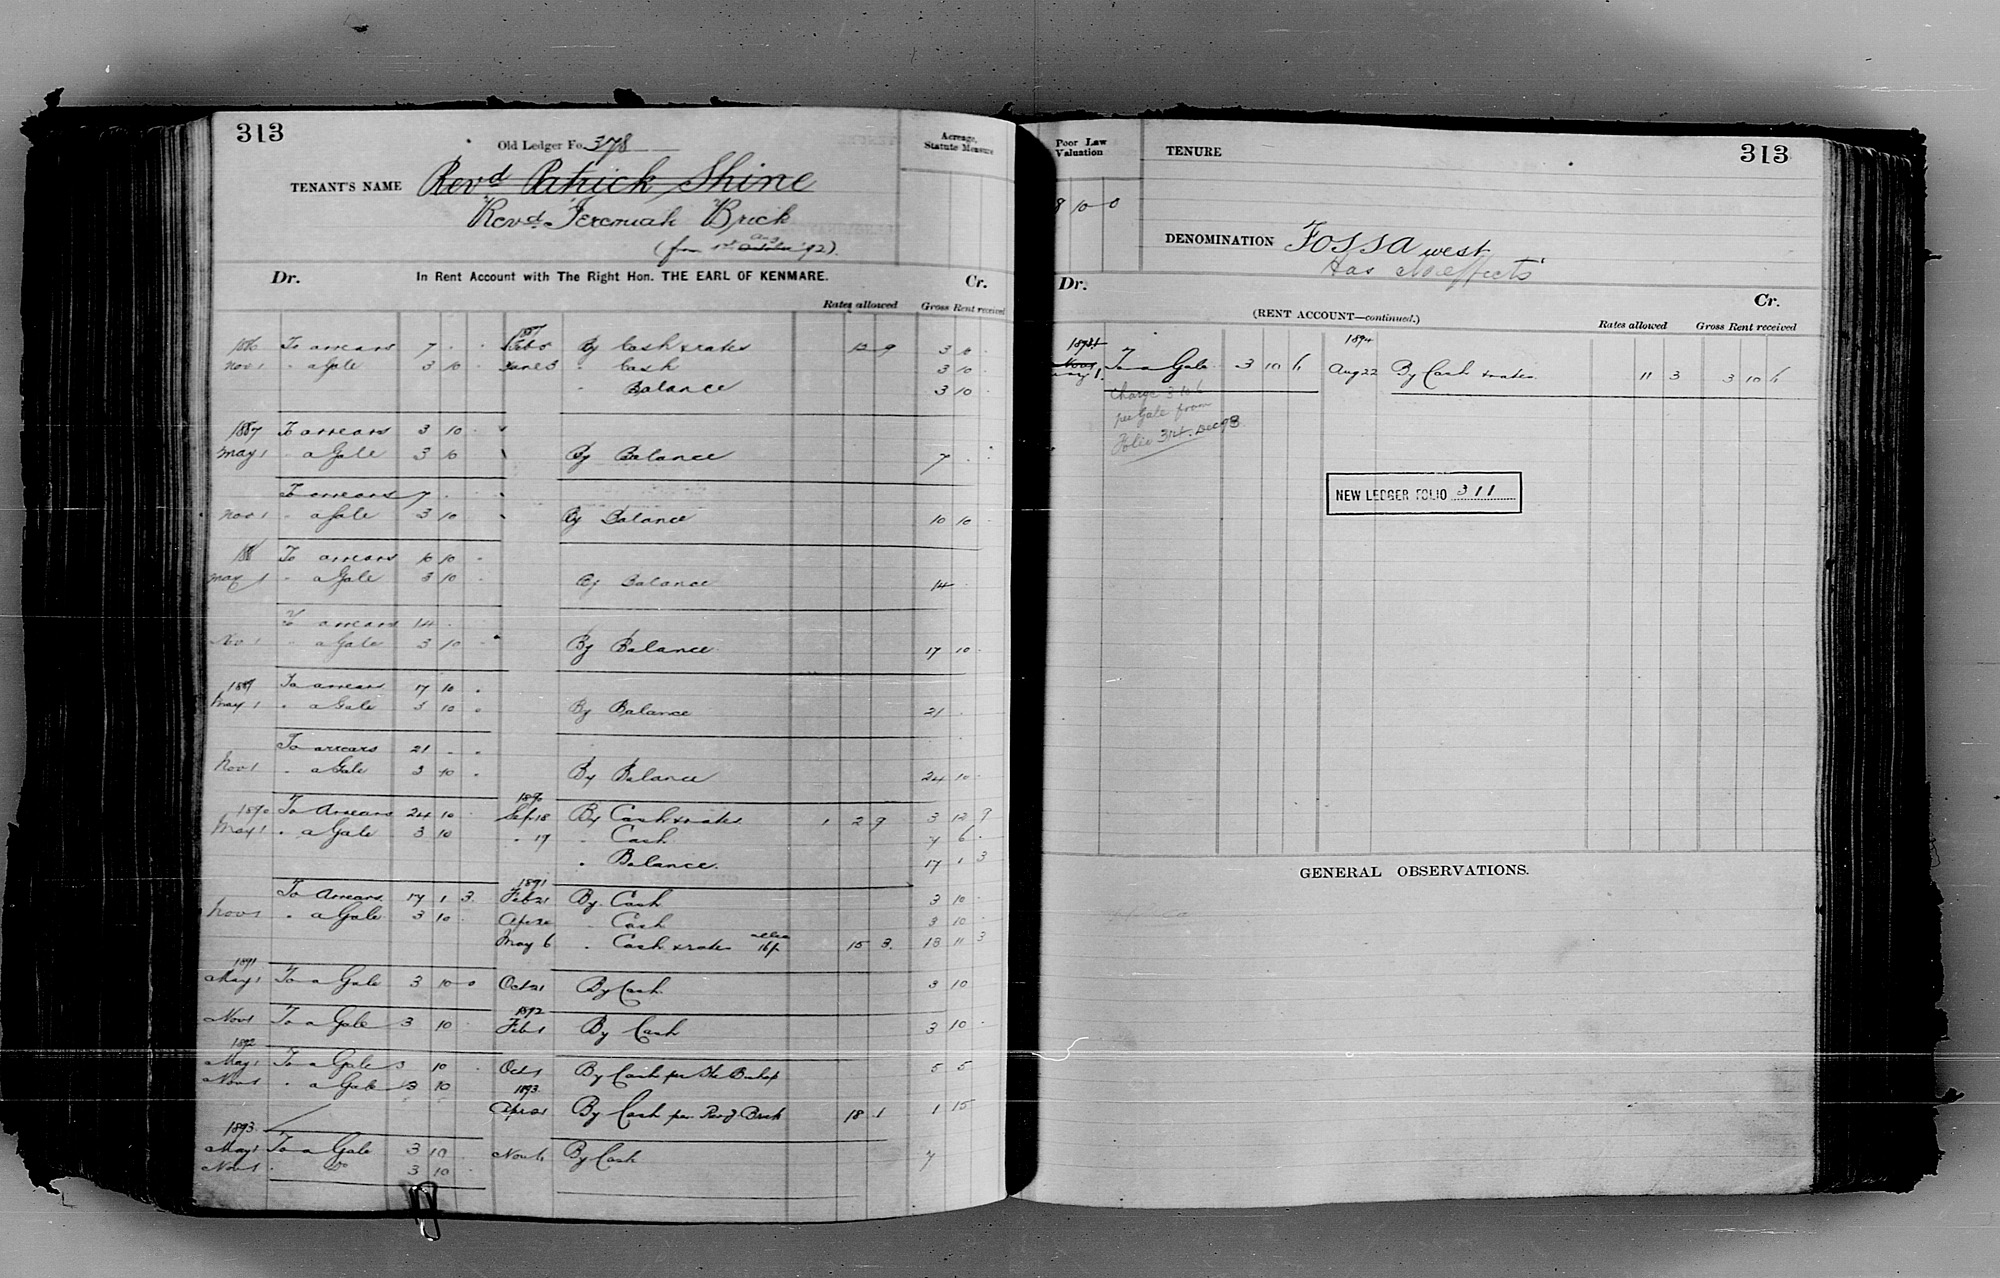 313
Old Ledger Fo. 378
Acreage, Statute Measure
TENANT'S NAME Revd Patrick Shine
Revd Jeremiah Brick
(from 1st Aug '92).
Dr. In Rent Account with The Right Hon. THE EARL OF KENMARE. Cr.
Rates allowed Gross Rent received
1886 To arrears 7 . . 1887 Feb By Cash & rates 12 9 3 10 .
Nov 1 " a Gale 3 10 . June 3 " Cash 3 10 .
" Balance 3 10 .
1887 To arrears 3 10 .
May 1 " a Gale 3 10 By Balance 7 . .
To arrears 7 . .
Nov 1 " a Gale 3 10 By Balance 10 10 .
188 To arrears 10 10 .
May 1 " a Gale 3 10 . By Balance 14 .
To arrears 14 .
Nov 1 " a Gale 3 10 . By Balance 17 10 .
1889 To arrears 17 10 .
May 1 " a Gale 3 10 . By Balance 21 .
To arrears 21 . .
Nov 1 " a Gale 3 10 . By Balance 24 10 .
1890 To Arrears 24 10 . 1890 Sep 18 By Cash & rates 1 2 9 3 12 9
May 1 " a Gale 3 10 " 19 " Cash 7 6 .
" Balance 17 1 3
To Arrears 17 1 3. 1891 Feb 21 By Cash 3 10 .
Nov 1 " a Gale 3 10 . Apr " Cash 3 10 .
May 6 " Cash & rates 15 3. 13 11 3
1891
May 1 To a Gale 3 10 0 Oct 21 By Cash 3 10
Nov 1 To a Gale 3 10 . 1892 Feb 1 By Cash 3 10 .
1892
May 1 To a Gale 3 10 . Oct 1 By Cash per the Bishop 5 5
Nov 1 " a Gale 3 10 1893
Apr 21 By Cash per Revd Brick 18 1 1 15
1893
May 1 To a Gale 3 10 . Nov 6 By Cash 7
Nov 1 " Do 3 10 .
Poor Law Valuation
TENURE
313
8 10 0
DENOMINATION Fossa west
Has No effects
Dr. Cr.
(RENT ACCOUNT—continued.)
Rates allowed Gross Rent received
1894
Nov
May 1. To a Gale 3 10 6 Aug 22 By Cash & rates 11 3 3 10 6
Charge 3 10 6
per Gale from
Folio Dec 93
NEW LEDGER FOLIO 311
GENERAL OBSERVATIONS.